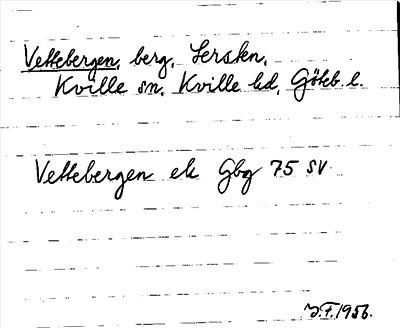 Vettebergen, berg, Sersten,
Kville sn, Kville hd, Göteb. l.
Vettebergen ek Gbg 75 SV
J.F. 1956.